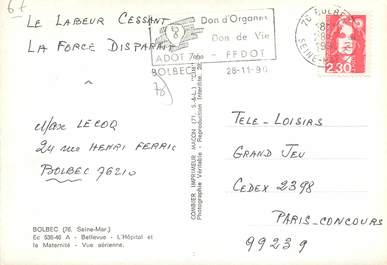 67
LE LABEUR CESSANT
LA FORCE DISPARAIT
Don d'Organes
Don de Vie
ADOT 76 - FFDOT
BOLBEC 28-11-90
76 BOLBEC
SEINE-MAR
2,30
Max LECOQ
24 rue HENRI FERRIC
BOLBEC 76210
TELE-LOISIRS
GRAND JEU
CEDEX 2398
PARIS-CONCOURS
99239
COMBIER IMPRIMEUR MACON (71. S.-&-L.) "CIM"
Photographie Véritable - Reproduction Interdite.
BOLBEC (76. Seine-Mar.)
Ec 536-46 A - Bellevue - L'Hôpital et
la Maternité - Vue aérienne.